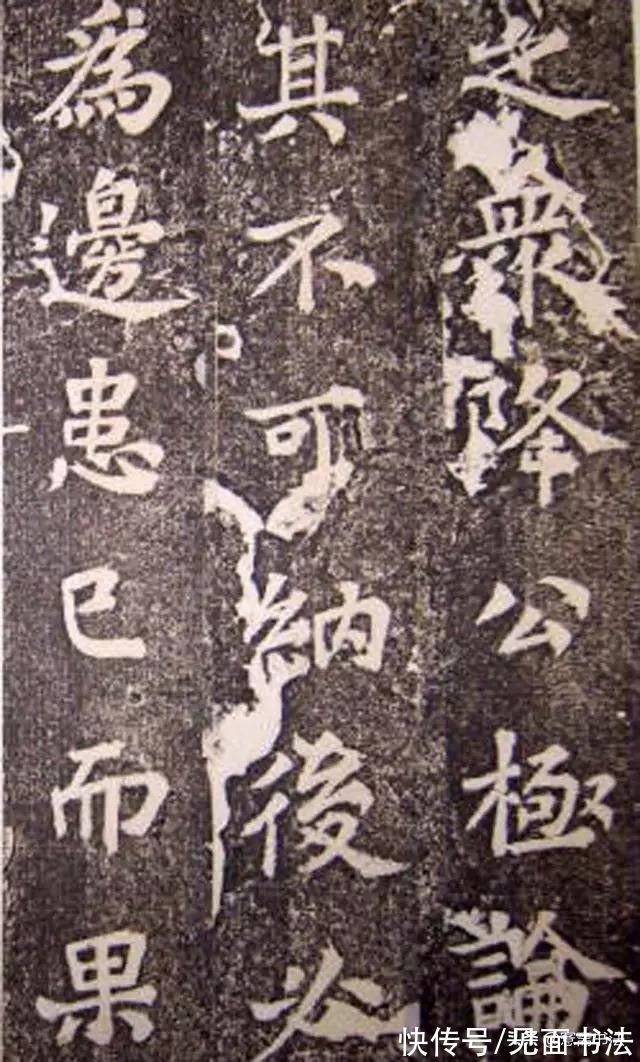 之衆降公極論
其不可納後必
為邊患已而果
快传号/见面书法